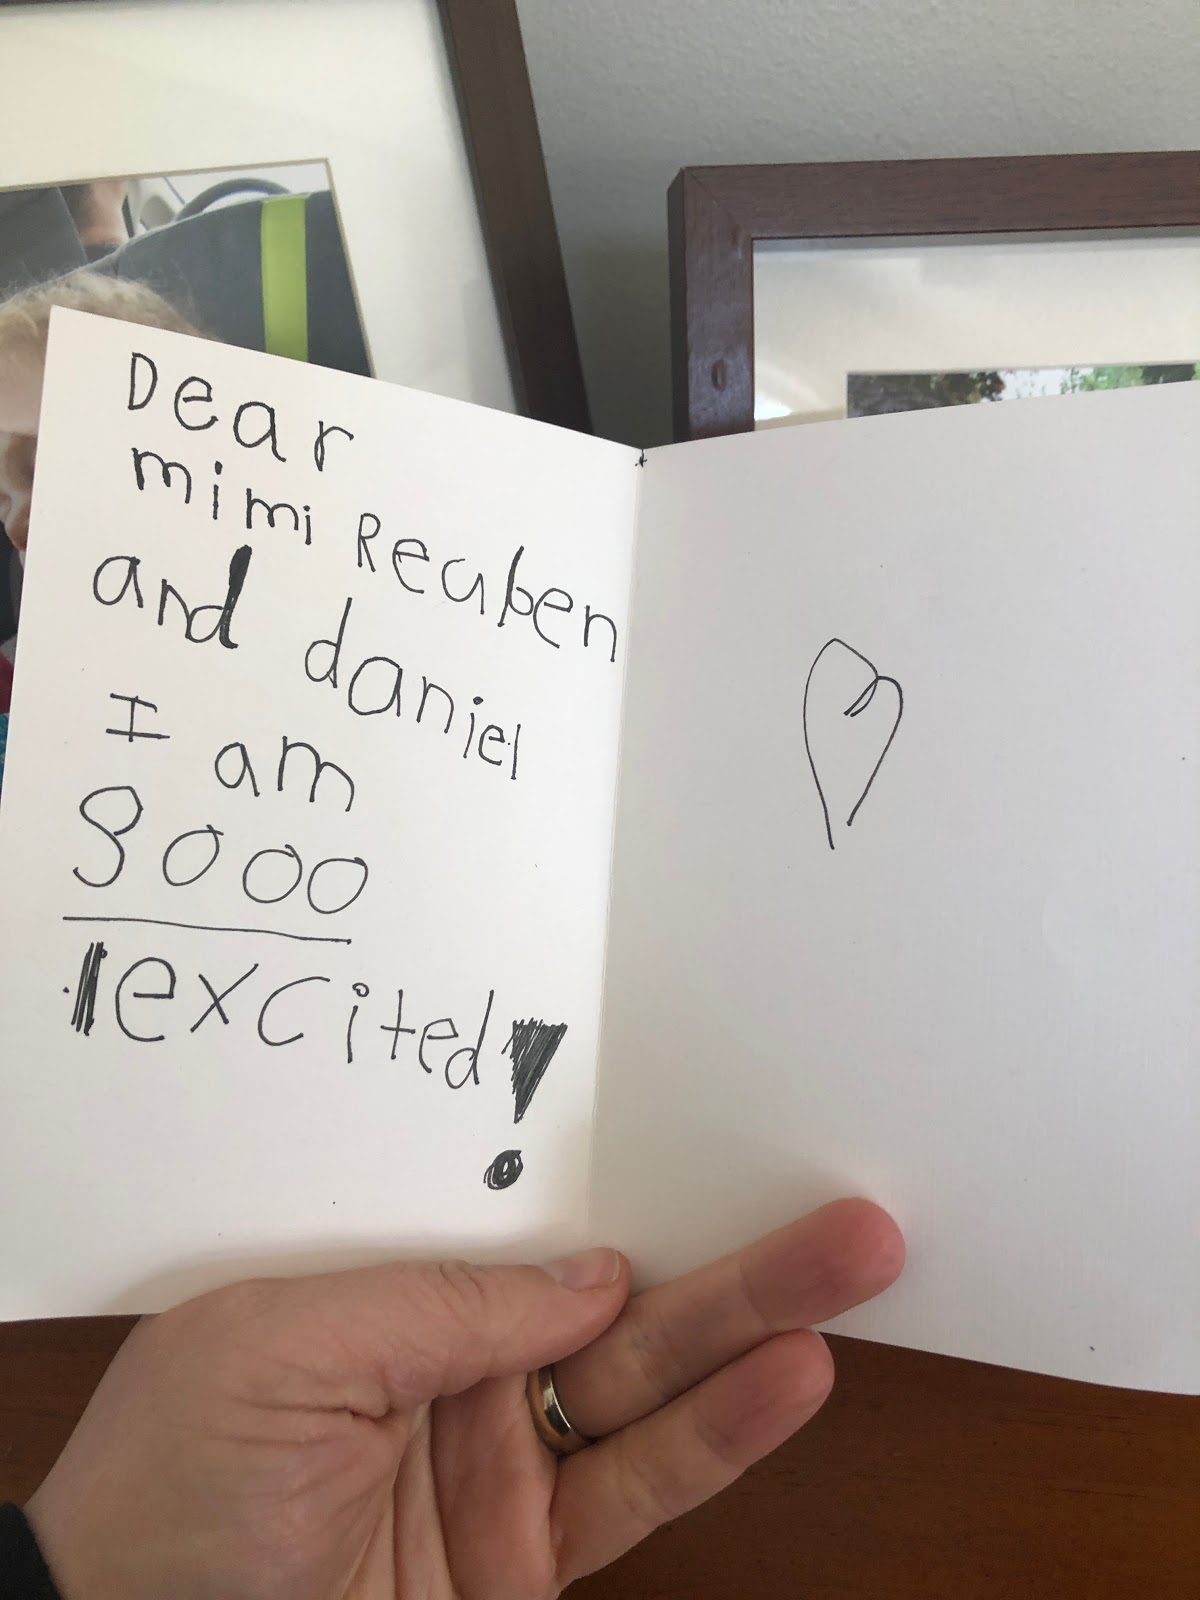 Dear
mimi Reuben
and daniel
I am
sooo
excited!